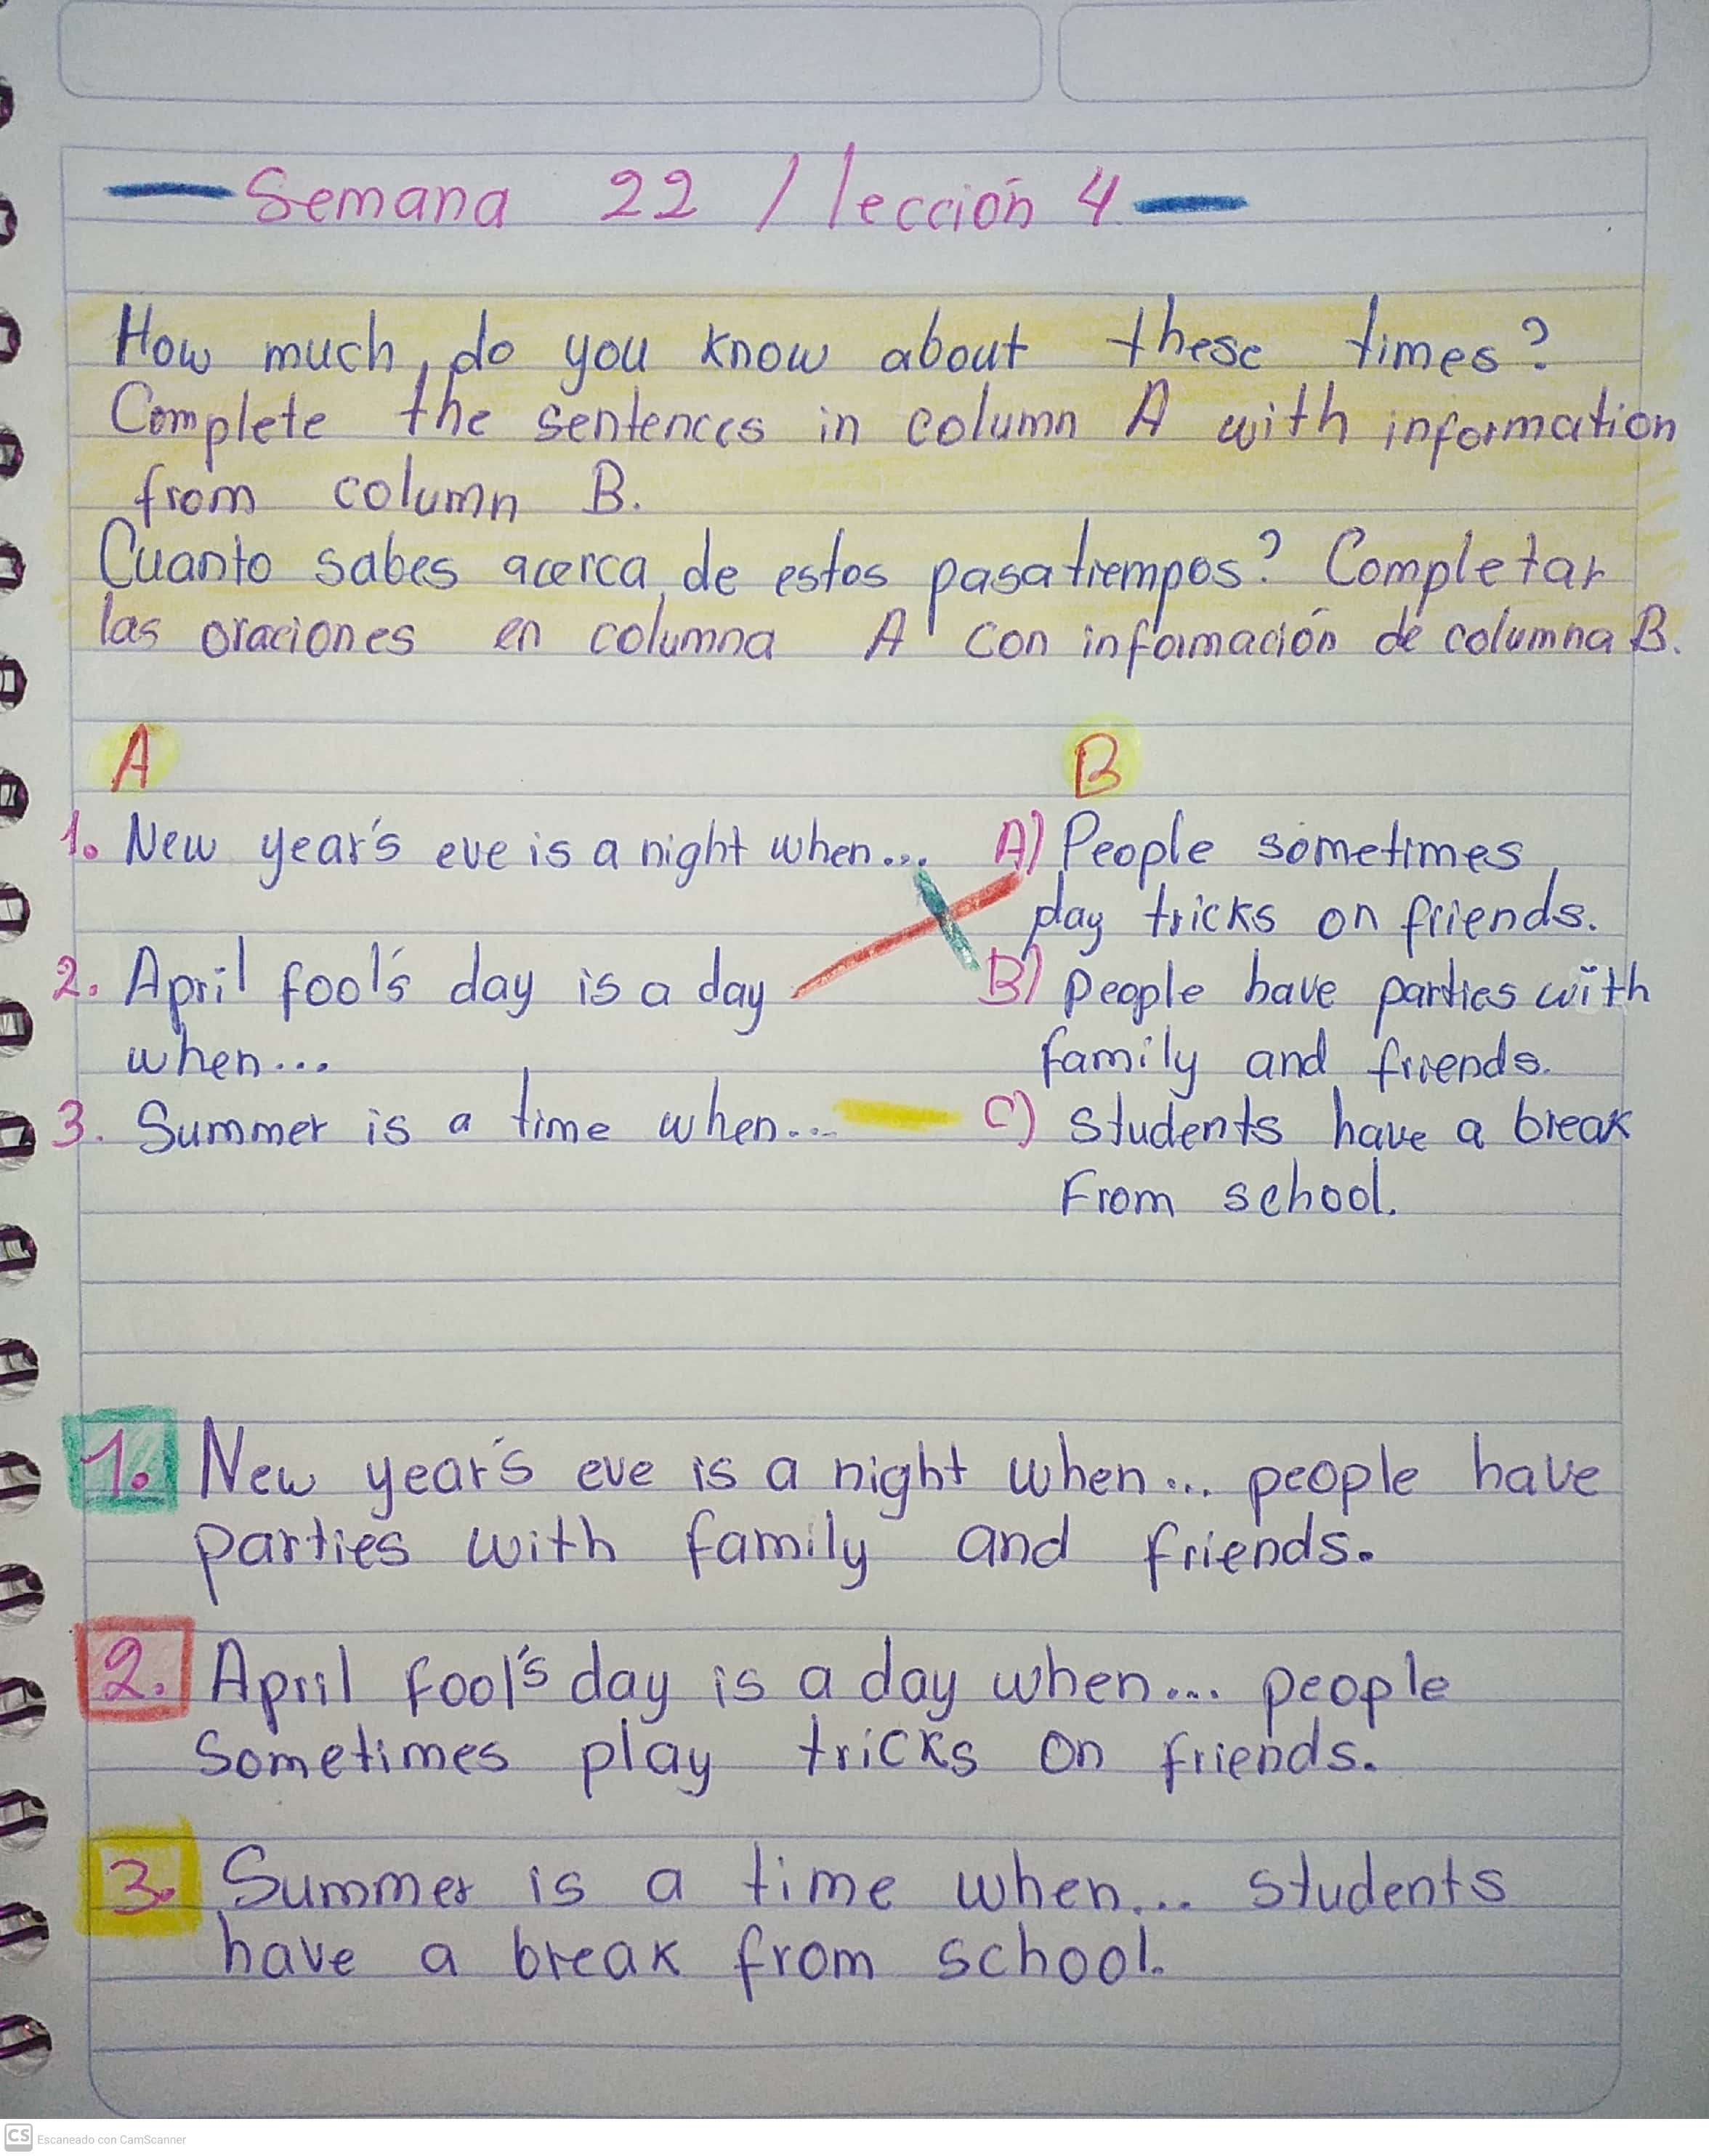 Semana 22 / lección 4
How much do you know about these times?
Complete the sentences in column A with information
from column B.
Cuanto sabes acerca de estos pasatiempos? Completar
las oraciones en columna A con información de columna B.
A
B
1. New year's eve is a night when...
A) People sometimes
play tricks on friends.
2. April fool's day is a day
when...
B) People have parties with
family and friends.
3. Summer is a time when...
C) students have a break
From school.
1. New year's eve is a night when... people have
parties with family and friends.
2. April fool's day is a day when... people
sometimes play tricks on friends.
3. Summer is a time when... students
have a break from school.
CS Escaneado con CamScanner